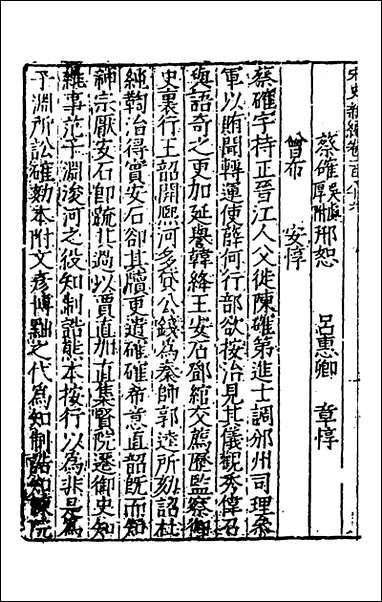 宋史新編卷百
蔡確吳處厚附邢恕　呂惠卿　章惇
曾布　安惇
蔡確字持正晉江人父徙陳確第進士調邠州司理參
軍以賄聞轉運使薛何行部欲按治見其儀觀秀偉召
與語奇之更加延譽韓絳王安石鄧綰交薦歷監察御
史裏行王韶開熙河多貸公錢為秦帥郭逵所劾詔杜
純鞫治得實安石卻其牘更遣確確希意直韶旣而知
神宗厭安石即疏其過以賈直加直集賢院遷御史知
雜事范子淵浚河之役知制誥熊本按行以為非是為
子淵所訟確劾本附文彥博黜之代為知制誥知諫院